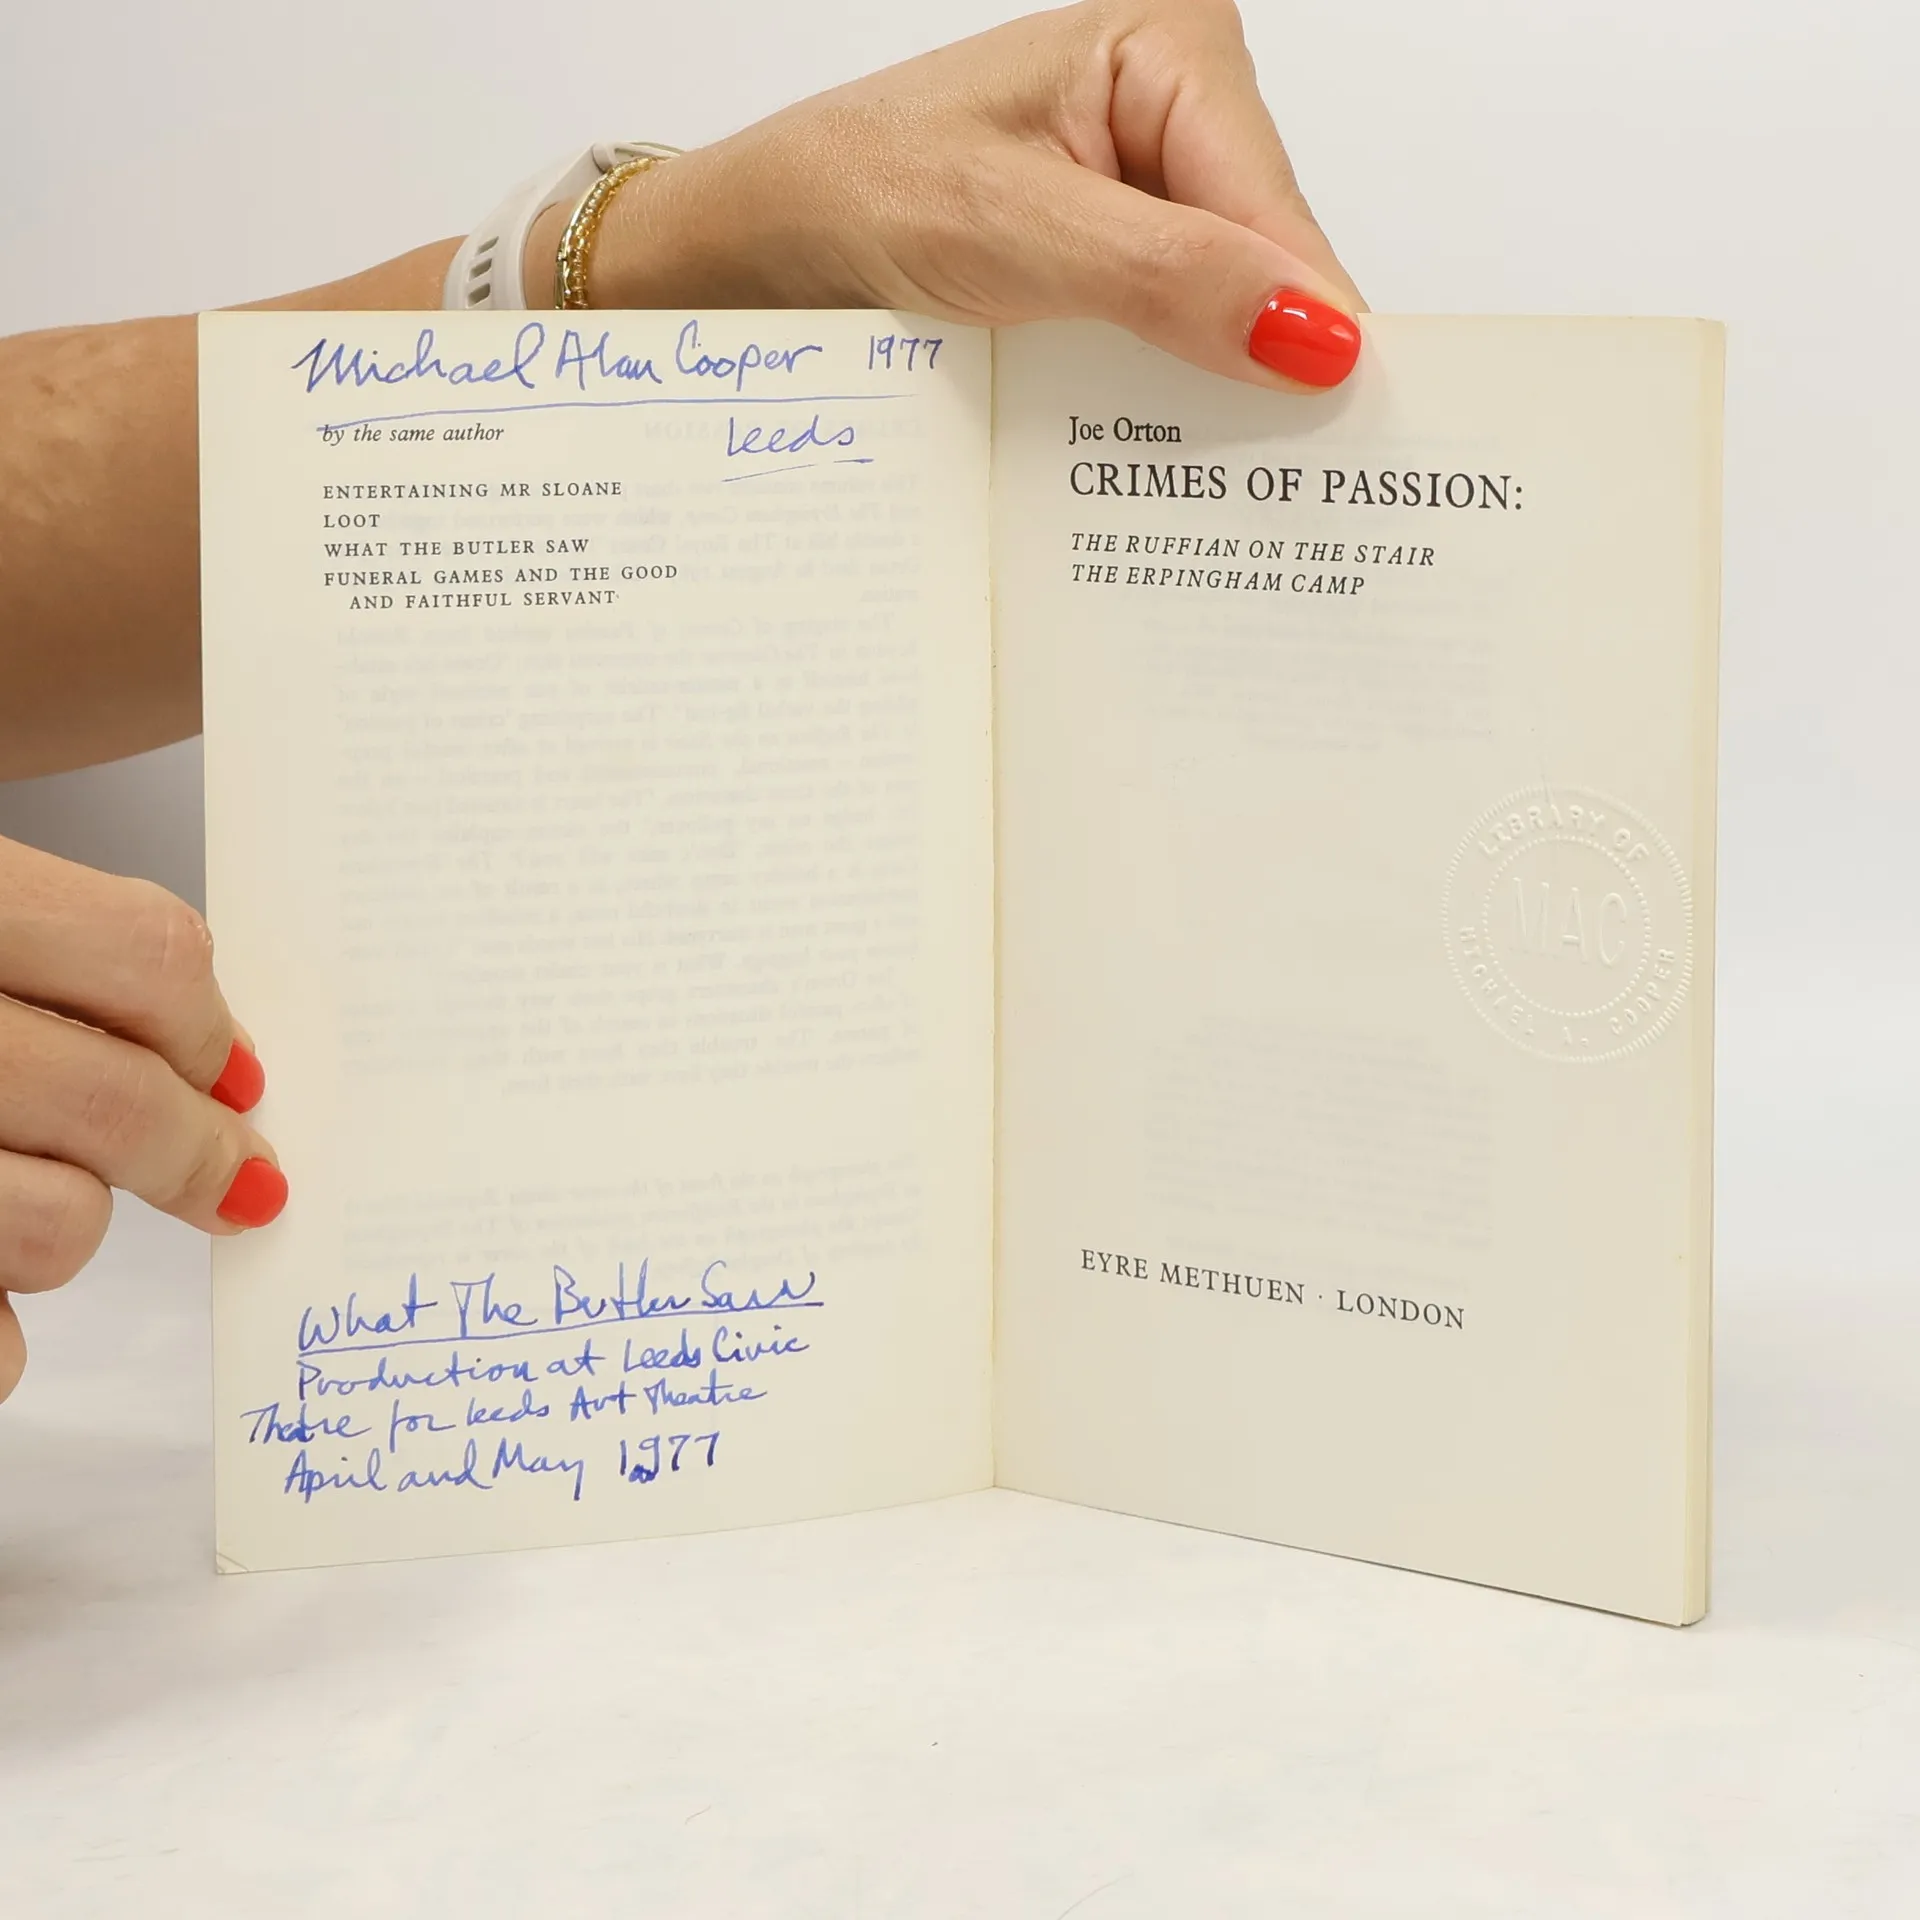 Michael Alan Cooper 1977
Leeds
by the same author
ENTERTAINING MR SLOANE
LOOT
WHAT THE BUTLER SAW
FUNERAL GAMES AND THE GOOD
AND FAITHFUL SERVANT
What The Butler Saw
Production at Leeds Civic
Theatre for Leeds Art Theatre
April and May 1977
Joe Orton
CRIMES OF PASSION:
THE RUFFIAN ON THE STAIR
THE ERPINGHAM CAMP
LIBRARY OF
MAC
MICHAEL A. COOPER
EYRE METHUEN · LONDON